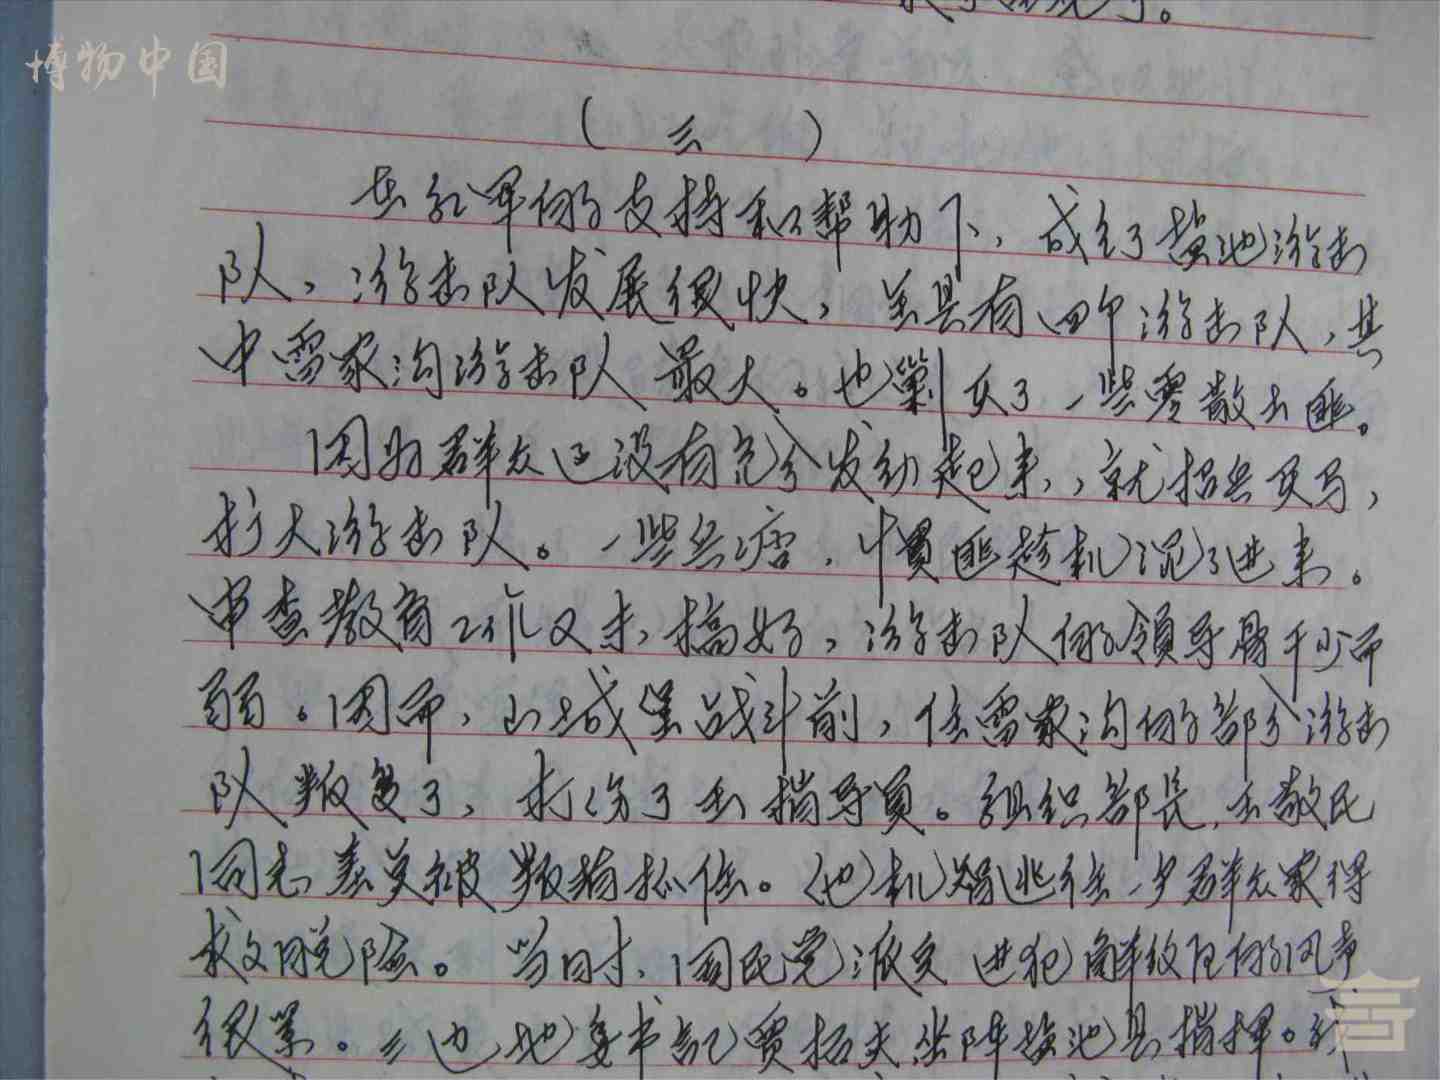 博物中国
（三）
在红军的支持和帮助下，成立了盐池游击
队，游击队发展很快，全县有四个游击队，其
中雷家沟游击队最大。也剿灭了一些零散土匪。
因为群众还没有充分发动起来，就招兵买马，
扩大游击队。一些兵痞，惯匪趁机混了进来。
审查教育工作又未搞好，游击队的领导骨干少而
弱。因而，山城堡战斗前，住雷家沟的部分游击
队叛变了，打伤了王指导员。组织部长王敬民
同志差点被叛徒抓住。他机智逃往一户群众家得
救脱险。当时，国民党派兵进犯解放区的风声
很紧。三边地委书记贾拓夫坐阵盐池县指挥。